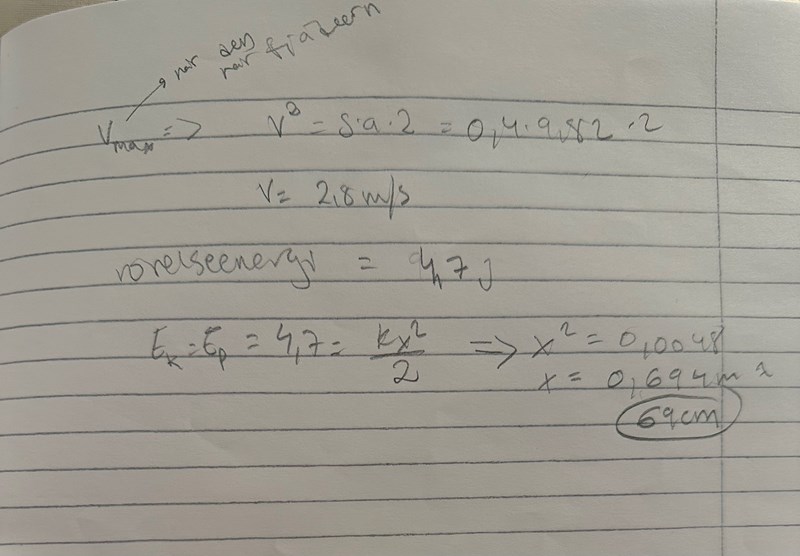 når den
når fjädern
Vmax => V² = s·a·2 = 0,4·9,82·2
V = 2,8 m/s
rörelseenergi = 4,7 j
Ek = Ep = 4,7 = kx²/2 => x² = 0,0048
x = 0,694 m ≈
69 cm